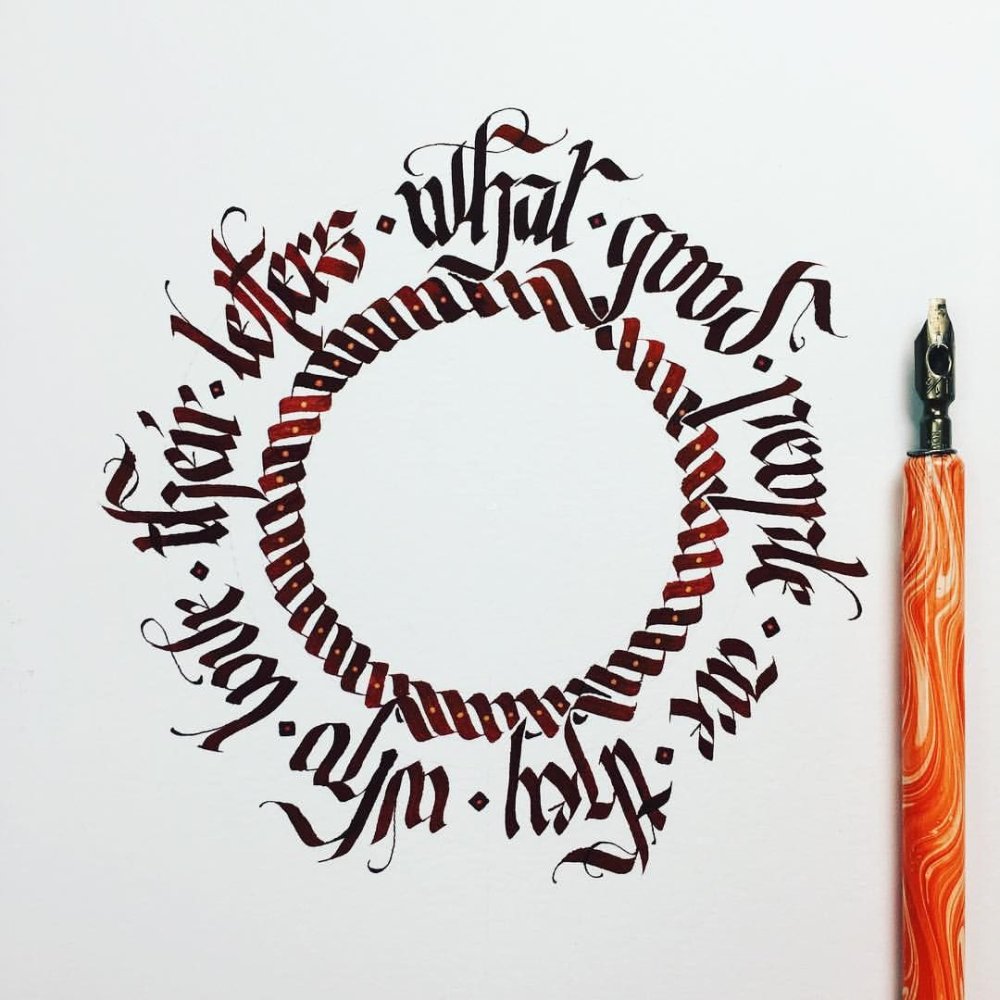 what · good · people · are · they · who · love · their · letters ·